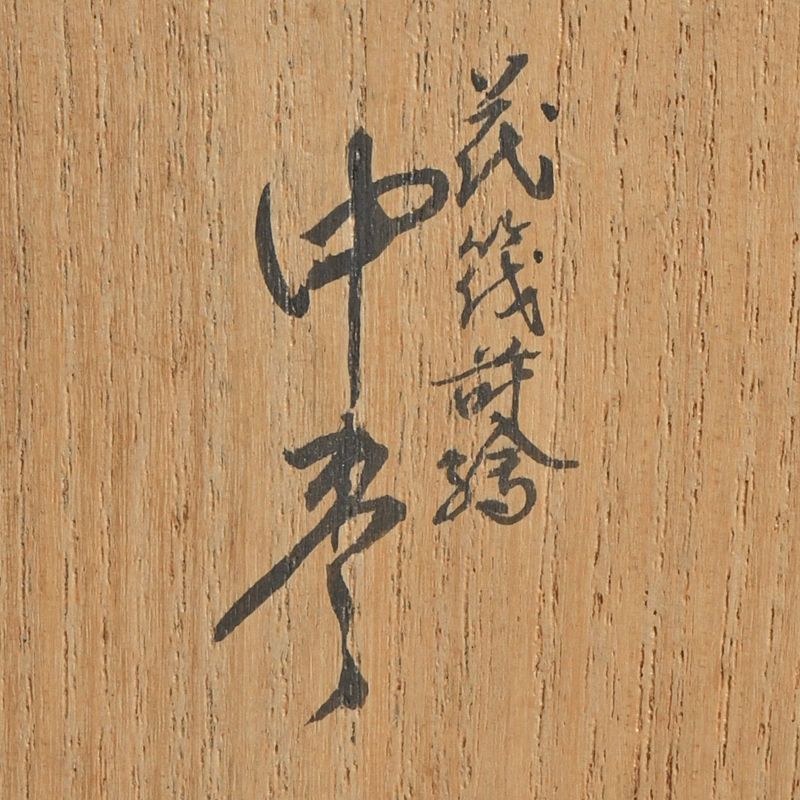 花筏蒔絵
中棗